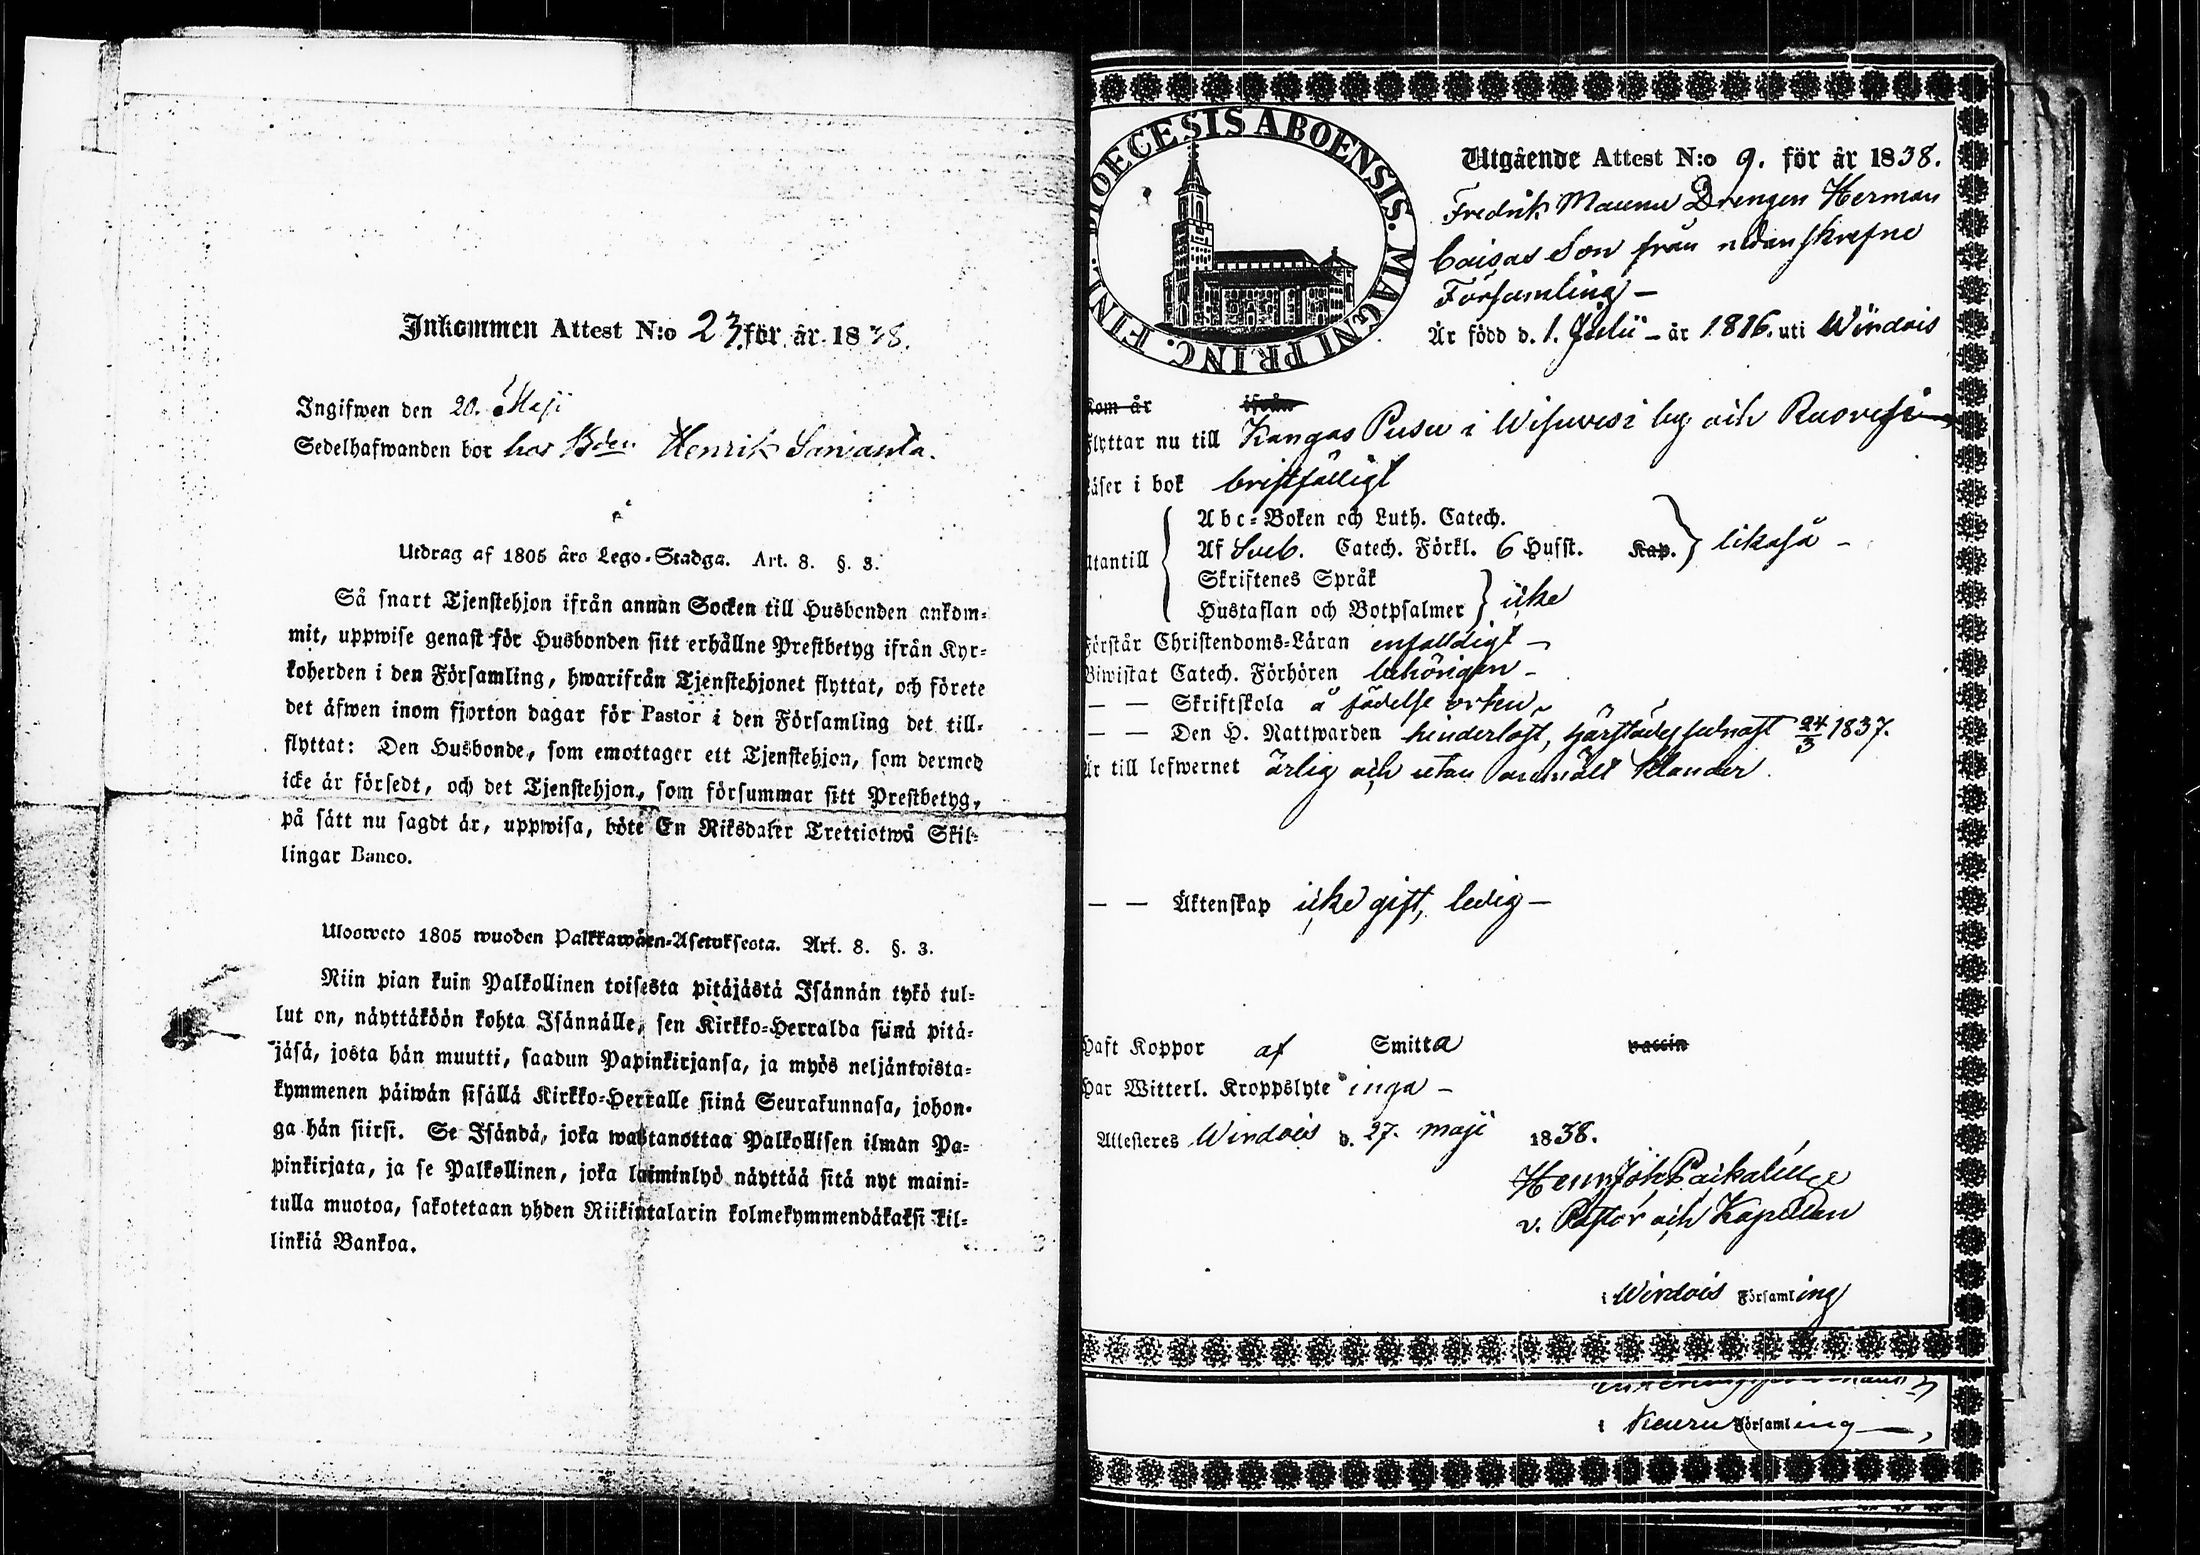 Inkommen Attest N:o 23. för år 1838.
Ingifwen den 20. Maji
Sedelhafwanden bor hos Bden Henrik
Utdrag af 1805 års Lego-Stadga. Art. 8. §. 3.
Så snart Tjenstehjon ifrån annan Socken till Husbonden ankom-
mit, uppwise genast för Husbonden sitt erhållne Prestbetyg ifrån Kyr-
koherden i den Församling, hwarifrån Tjenstehjonet flyttat, och förete
det äfwen inom fjorton dagar för Pastor i den Församling det till-
flyttat: Den Husbonde, som emottager ett Tjenstehjon, som dermed
icke är försedt, och det Tjenstehjon, som försummar sitt Prestbetyg,
på sätt nu sagdt är, uppwisa, böte En Riksdaler Trettiotwå Skil-
lingar Banco.
Ulosweto 1805 wuoden Palkkawäen-Asetuksesta. Art. 8. §. 3.
Niin pian kuin Palkollinen toisesta pitäjästä Isännän tykö tul-
lut on, näyttäköön kohta Isännälle, sen Kirkko-Herralda siinä pitä-
jäsä, josta hän muutti, saadun Papinkirjansa, ja myös neljäntoista-
kymmenen päiwän sisällä Kirkko-Herralle siinä Seurakunnasa, johon-
ga hän siirsi. Se Isändä, joka wastanottaa Palkollisen ilman Pa-
pinkirjata, ja se Palkollinen, joka laiminlyö näyttää sitä nyt maini-
tulla muotoa, sakotetaan yhden Riikintalarin kolmekymmendäkaksi kil-
linkiä Bankoa.
DIOECESIS ABOENSIS. MAGNI PRINC. FINL.
Utgående Attest N:o 9. för år 1838.
Fredrik Maunu Drengen Herman
Caisas Son från nedanskrefne
Församling —
Är född d. 1. Julii — år 1816. uti Wirdois
Kom år ifrån
Flyttar nu till Kangas Pusu i Wisuvesi by och Ruovesi
Läser i bok bristfälligt
Abc-Boken och Luth. Catech.
Utantill Af Sveb. Catech. Förkl. 6 Hufst. Kap. likaså —
Skriftenes Språk
Hustaflan och Botpsalmer icke
Förstår Christendoms-Läran enfaldigt —
Biwistat Catech. Förhören behörigen —
— — Skriftskola å födelse orten
— — Den H. Nattwarden hinderlöst, härstädes sednast 24/3 1837.
Är till lefwernet ärlig och utan anmält klander.
— — Äktenskap icke gift, ledig —
Haft Koppor af Smitta vaccin
Har Witterl. Kroppslyte inga —
Attesteres Wirdois d. 27. Maji 1838.
Henr Joh
v. Pastor och Kapellan
i Wirdois Församling
i Keuru Församling —